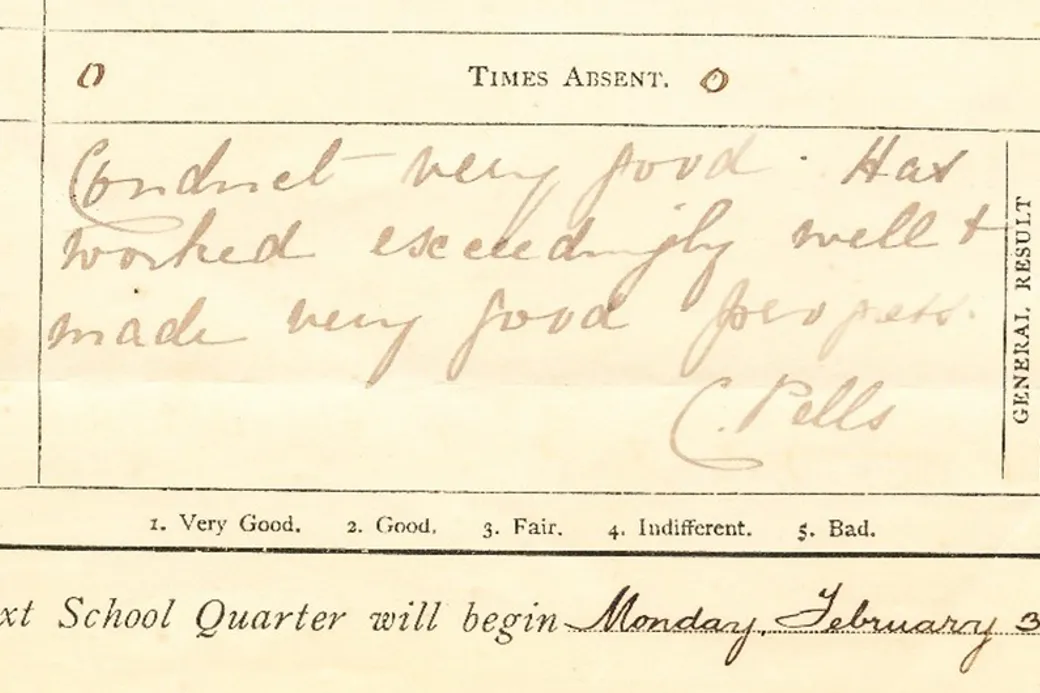 0 TIMES ABSENT. 0
Conduct very good. Has
worked exceedingly well &
made very good progress.
C. Pells
GENERAL RESULT
1. Very Good. 2. Good. 3. Fair. 4. Indifferent. 5. Bad.
xt School Quarter will begin Monday, February 3